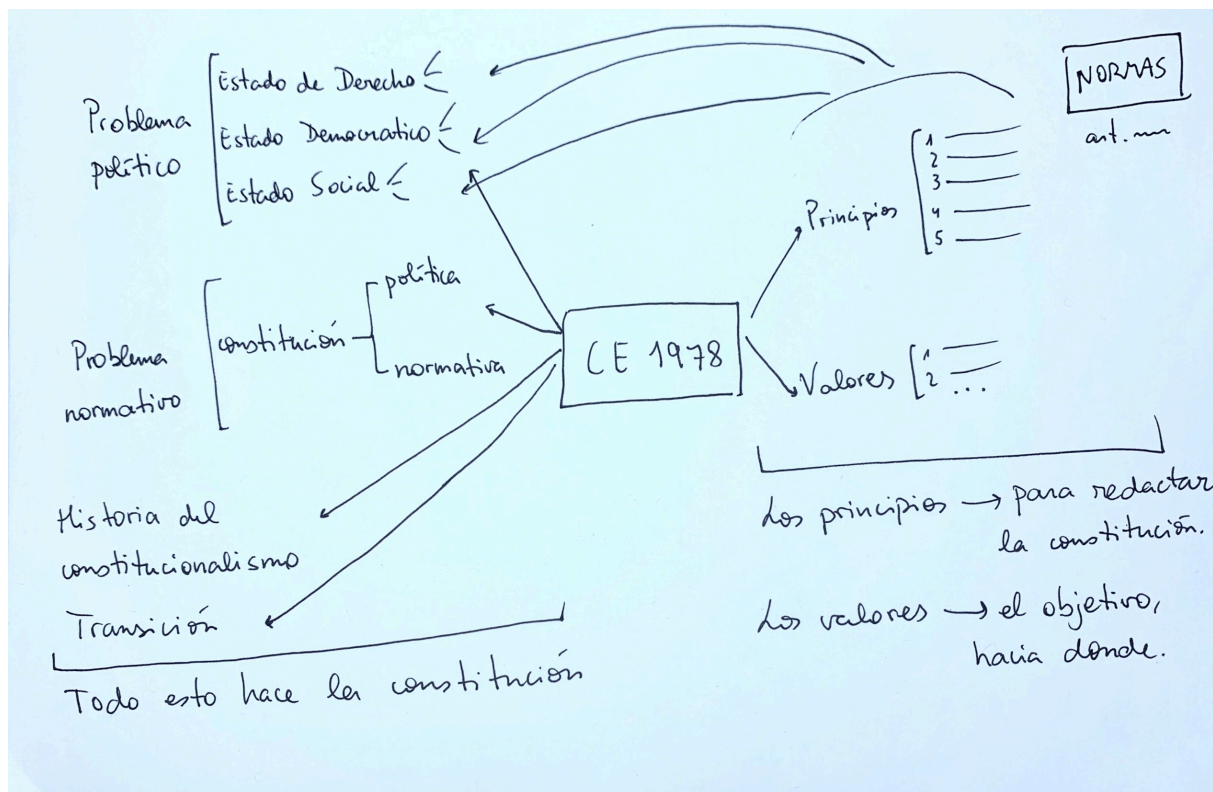 Problema
político
Estado de Derecho
Estado Democratico
Estado Social
Problema
normativo
constitución
política
normativa
Historia del
constitucionalismo
Transición
Todo esto hace la constitución
CE 1978
NORMAS
art.
Principios
1
2
3
4
5
Valores
1
2
...
Los principios → para redactar
la constitución.
Los valores → el objetivo,
hacia donde.